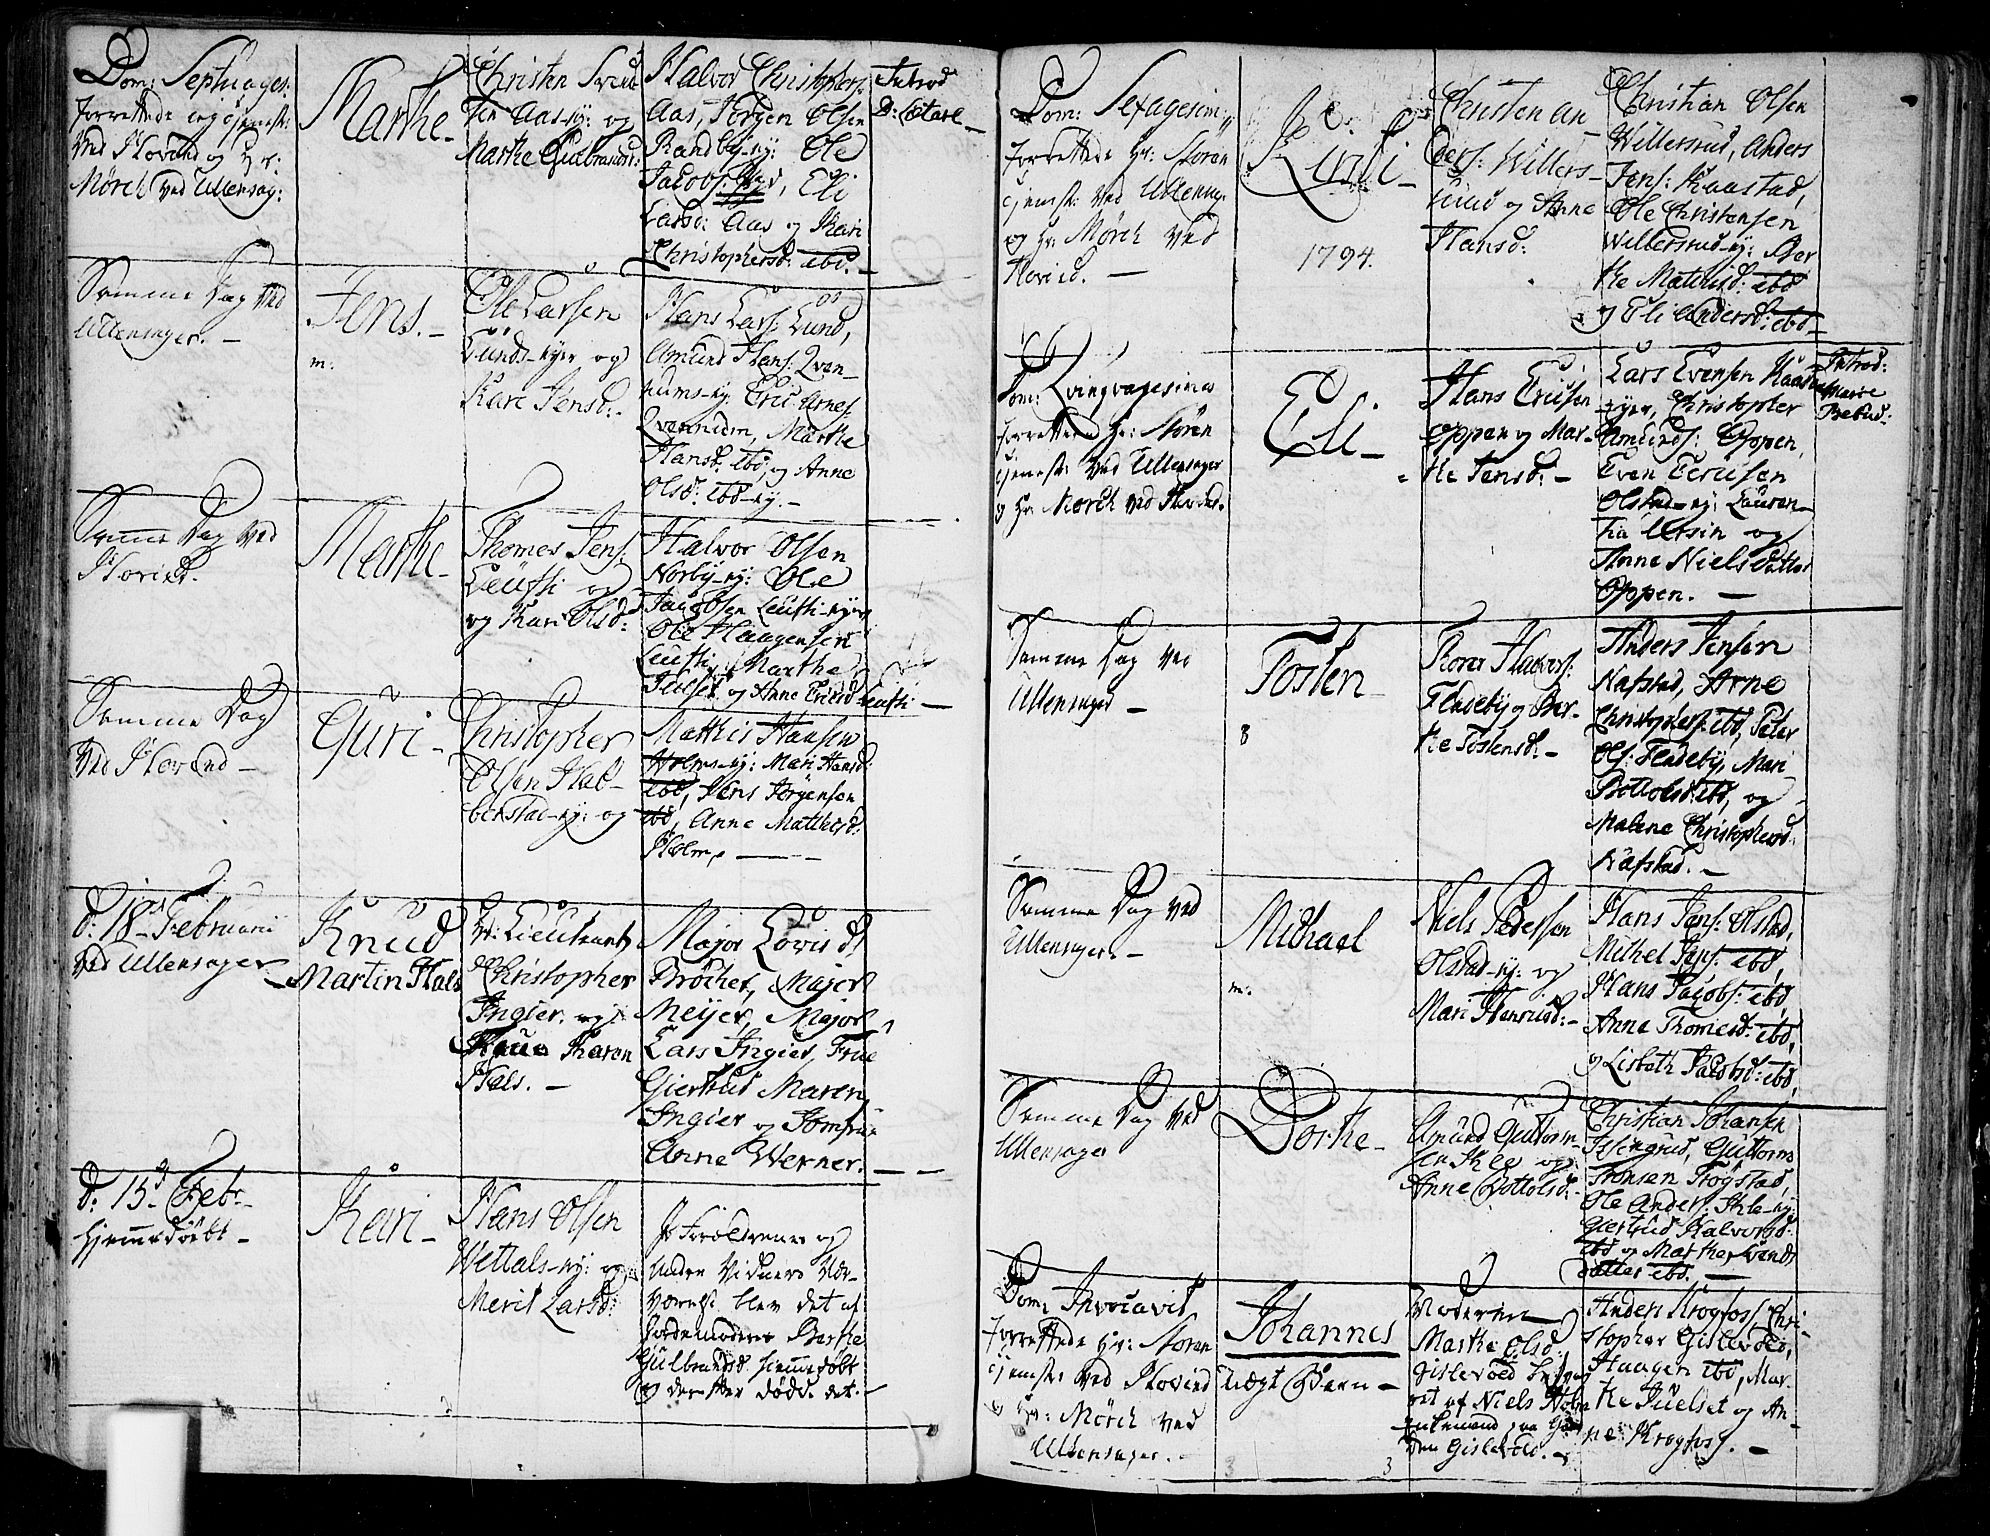 Dom: Septuages:
forrettede ieg
ved Hovind og Hr:
Mørch ved Ullensag:
Marthe
Christen
Aas-ey: og
Marthe Gulbrandsd:
Halvor Christophers:
Aas, Jørgen Olsen
Randby-ey: Ole
Jacobs: ibd, Eli
Larsd: Aas og Kari
Christophersd: ibd.
Introd
D: Lætare
Samme Dag ved
Ullensager.
Jens.
m:
Ole Larsen
Lunds-eyer og
Kari Jensd:
Hans Lars: Lund,
Amund Hans: Qven-
nums-ey: Eric Arnes:
Qvennum, Marthe
Hansd: ibd, og Anne
Olsd: ibd-ey.
Samme Dag ved
Hovind.
Marthe
Thomes Jens:
Leufti og
og Kari Olsd:
Halvor Olsen
Norby-ey: Ole
Jacobsen Leufti-eyer
Ole Haagensen
Leufti, Marthe
Julset og Anne Ericsd: Leufti
Samme Dag
ved Hovind
Guri
Christopher
Olsen Hæl-
berstad-ey: og
Mathis Hansen
Holms-ey: Mari Hansd:
ibd, Jens Jörgensen
ibd, Anne Mathisd:
Holm.
d: 18de Februarii
ved Ullensager
Knud
Martin Hals
Hr: Lieutnant
Christopher
Ingier og
Frue Karen
Hals.
Major Lovis d'
Bröcher, Major
Meijer, Major
Lars Ingier, Frue
Giertrud Maren
Ingier og Jomfru
Anne Werner.
d: 15de Febr.
hjemmedøbt
Kari
Hans Olsen
Wettals-ey: og
Merit Larsd:
I Forældrenes og
andre Vidners Nær-
værelse blev det af
Jordemoderen Berthe
Gulbrandsd: hiemmedøbt
og derefter døde det.
Dom: Sexagesim:
forrettede Hr: Støren
tjenest: ved Ullensag:
og Hr: Mørch ved
Hovind.
Kirsti
1794.
Christen An-
ders: Willers-
rud og Anne
Hansd:
Christian Olsen
Willersrud, Anders
Jens: Kaastad,
Ole Christensen
Willersrud-ey: Ber
the Mathisd: ibd
og Eli Andersd: ibd
Dom: Qvinqvagesima
forrettede Hr: Støren
tjenest: ved Ullensager
og Hr: Mørch ved Hovind.
Eli
Hans Ericsen
Oppen og Mar-
the Jensd:
Lars Evensen
eyer, Christopher
Amunds: Oppen,
Even Ericsen
Olstad-ey: Lauren-
tia Ursin og
Anne Niels Datter
Oppen.
Introd:
Mariæ
Bebud:
Samme Dag ved
Ullensager
Tosten
8
Thorer Halvors:
Fladeby og Ber-
the Tostensd:
Anders Jensen
Nafstad, Arne
Christophers: ibd, Peter
Ols: Fladeby, Mari
Bottolsd: ibd, og
Malene Christophersd:
Nafstad.
Samme Dag ved
Ullensager.
Michael
m:
Niels Pedersen
Olstad-ey: og
Mari Henricsd:
Hans Jens: Olstad,
Michel Jens: ibd,
Hans Jacobs: ibd,
Anne Thomesd: ibd,
og Lisbeth Jacobsd: ibd.
Samme Dag ved
Ullensager
Dorthe
Amund Guttorm-
sen Kla og
Anne Bottolsd:
Christian Johansen
Guttorm
Tronsen Trøgstad,
Ole Anders: Kla-ey:
Giertrud Halvorsd:
ibd og Marthe Svends
datter ibd.
Dom: Invocavit
forrettede Hr: Støren
tjenest: ved Hovind
og Hr: Mørch ved
Ullensager.
Johannes
Uægt Barn
Moderen
Marthe Olsd:
Gislevold
af Niels Holm
Enkemand paa
Gislevold.
Anders Krogfos, Chri-
stopher Gislevold,
Haagen ibd, Mar-
the Juelset og An-
ne Krogfos.
3